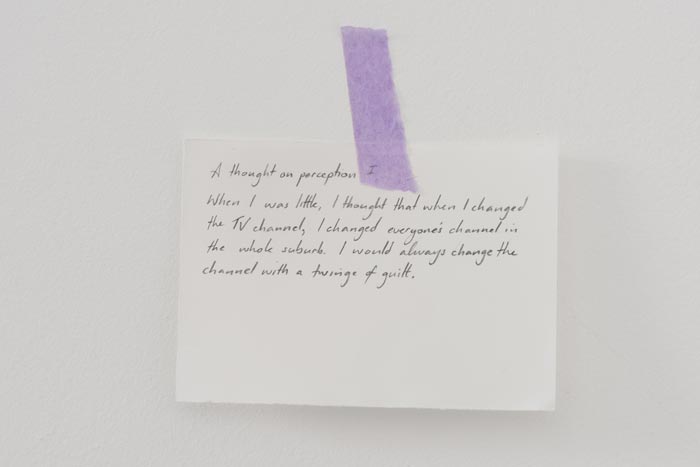 A thought on perception I
When I was little, I thought that when I changed
the TV channel, I changed everyone's channel in
the whole suburb. I would always change the
channel with a twinge of guilt.